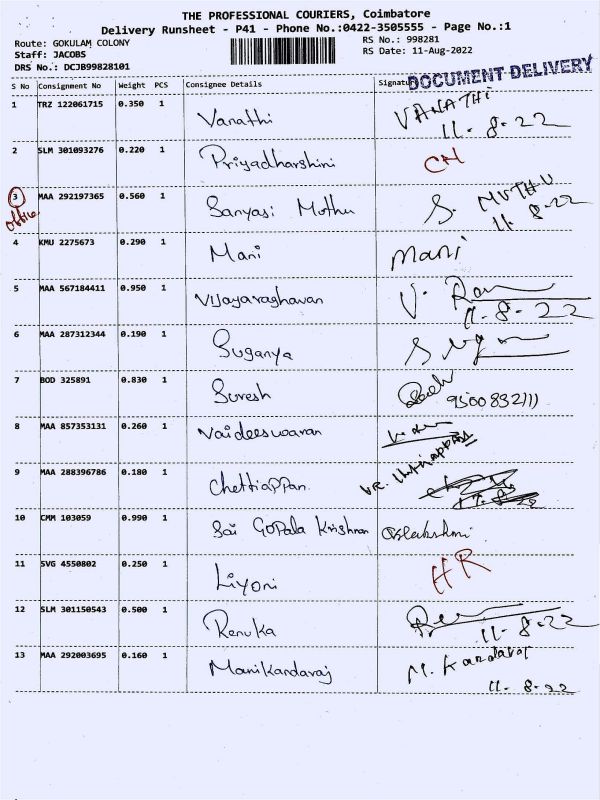 THE PROFESSIONAL COURIERS, Coimbatore
Delivery Runsheet - P41 - Phone No.:0422-3505555 - Page No.:1
Route: GOKULAM COLONY RS No.: 998281
Staff: JACOBS RS Date: 11-Aug-2022
DRS No.: DCJB99828101
DOCUMENT DELIVERY
S No Consignment No Weight PCS Consignee Details Signature
1 TRZ 122061715 0.350 1 Vanathi VANATHI
11-8-22
2 SLM 301093276 0.220 1 Priyadharshini CH
3 MAA 292197365 0.560 1 Sanyasi Muthu S. MUTHU
office 11-8-22
4 KMU 2275673 0.290 1 Mani Mani
5 MAA 567184411 0.950 1 Vijayaraghavan V.
11-8-22
6 MAA 287312344 0.190 1 Suganya
7 BOD 325891 0.830 1 Suresh
9500832111
8 MAA 857353131 0.260 1 Vaideeswaran
9 MAA 288396786 0.180 1 Chettiappan
10 CMM 103059 0.990 1 Sai Gopala Krishnan
11 SVG 4550802 0.250 1 Liyoni HR
12 SLM 301150543 0.500 1 Renuka
11-8-22
13 MAA 292003695 0.160 1 Manikandaraj M. Kandaraj
11-8-22